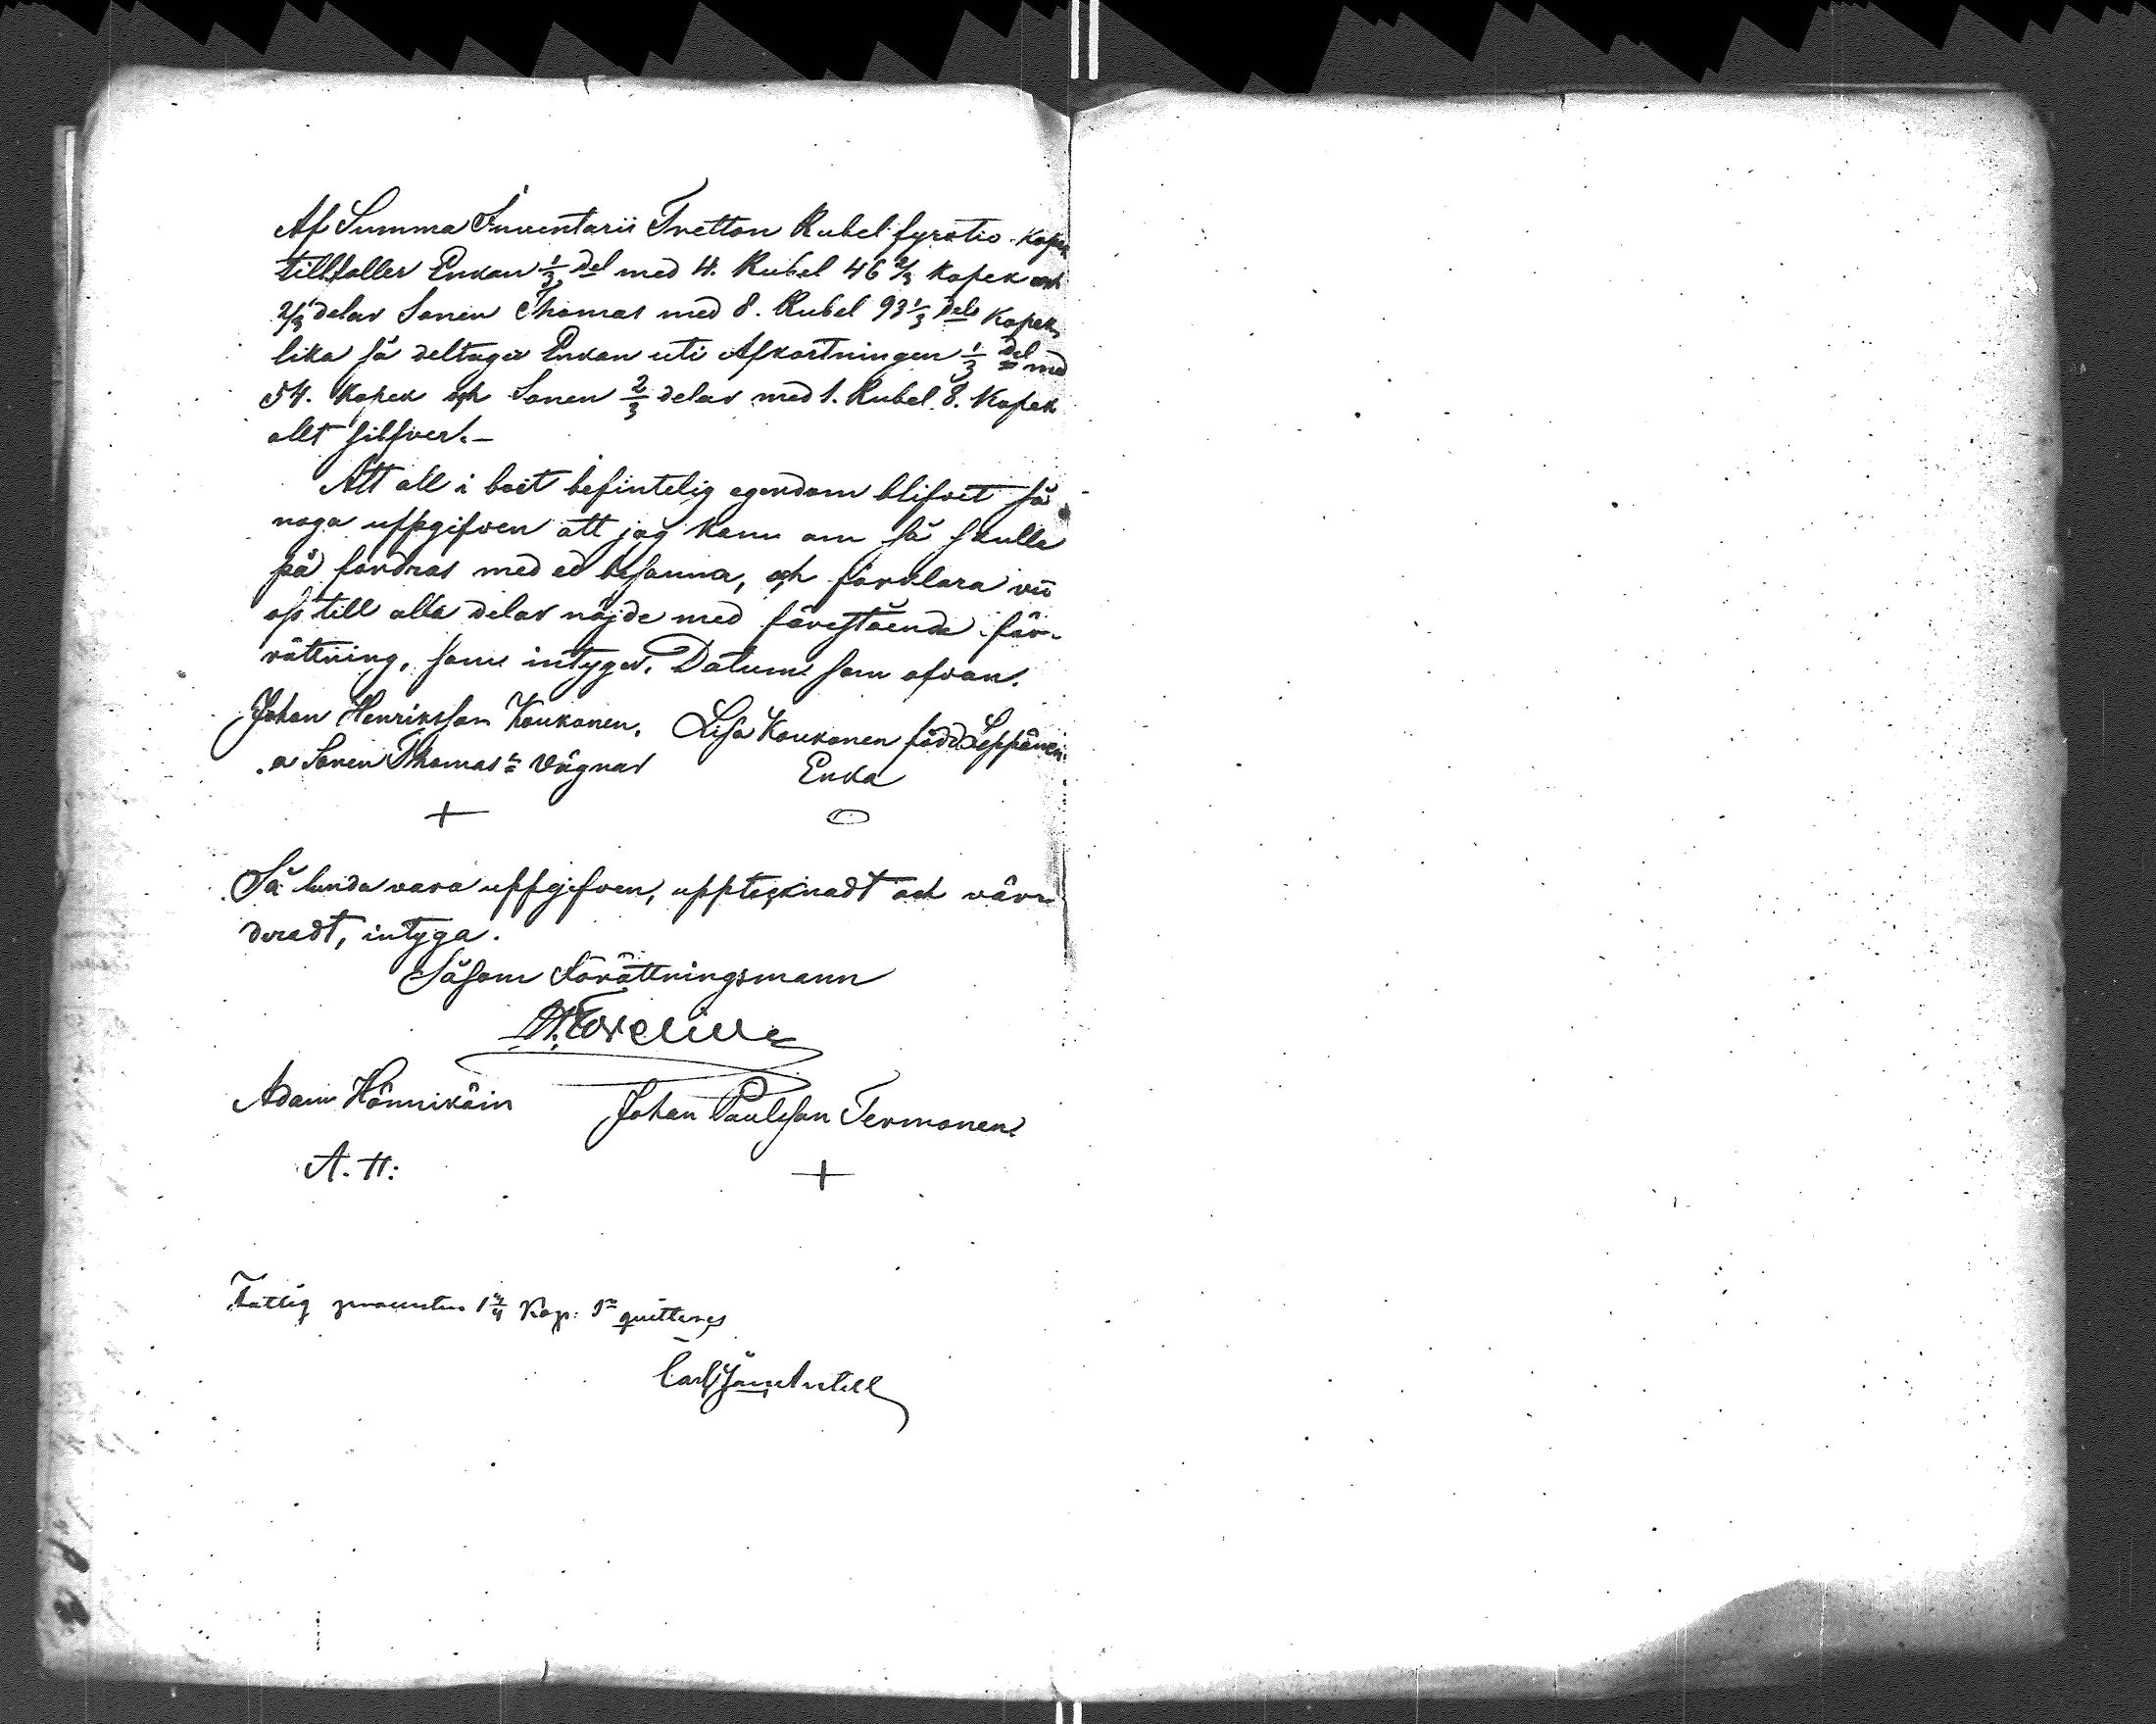 Af Summa Inventarii Tretton Rubel fyratio Kopek
tillfaller Enkan 1/3 del med 4. Rubel 46 2/3 Kopek och
2/3 delar Sonen Thomas med 8. Rubel 93 1/3 dels Kopek,
lika så deltager Enkan uti Afkortningen 1/3 del med
54. Kopek och Sonen 2/3 delar med 1. Rubel 8. Kopek
allt silfver.-
Att all i boet befintelig egendom blifvet så
noga uppgifven att jag kann om så skulle
på fordras med ed besanna, och förklara vii
oss till alla delar nöjde med förestående för-
rättning, som intygar. Datum som ofvan.
Johan Henriksson Koukonen. Lisa Koukonen född Leppänen.
a Sonen Thomas Vägnar Enka
+ O
Så lunda vara uppgifven, upptecknadt och värn
deradt, intyga.
Såsom Förättningsmann
Adam Hännikäin Johan Paulsson Termonen.
A. H: +
Fattig procenten 1 3/4 Kop: Sr quitteres
Carl